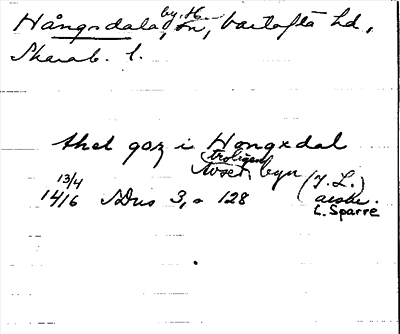 Hångsdala, by, H. sn, Vartofta hd,
Skarab. l.
thet goz i Hongxdal
troligen
Avser byn (J. L.)
13/4
1416 SDns 3, s 128 avskr.
L. Sparre